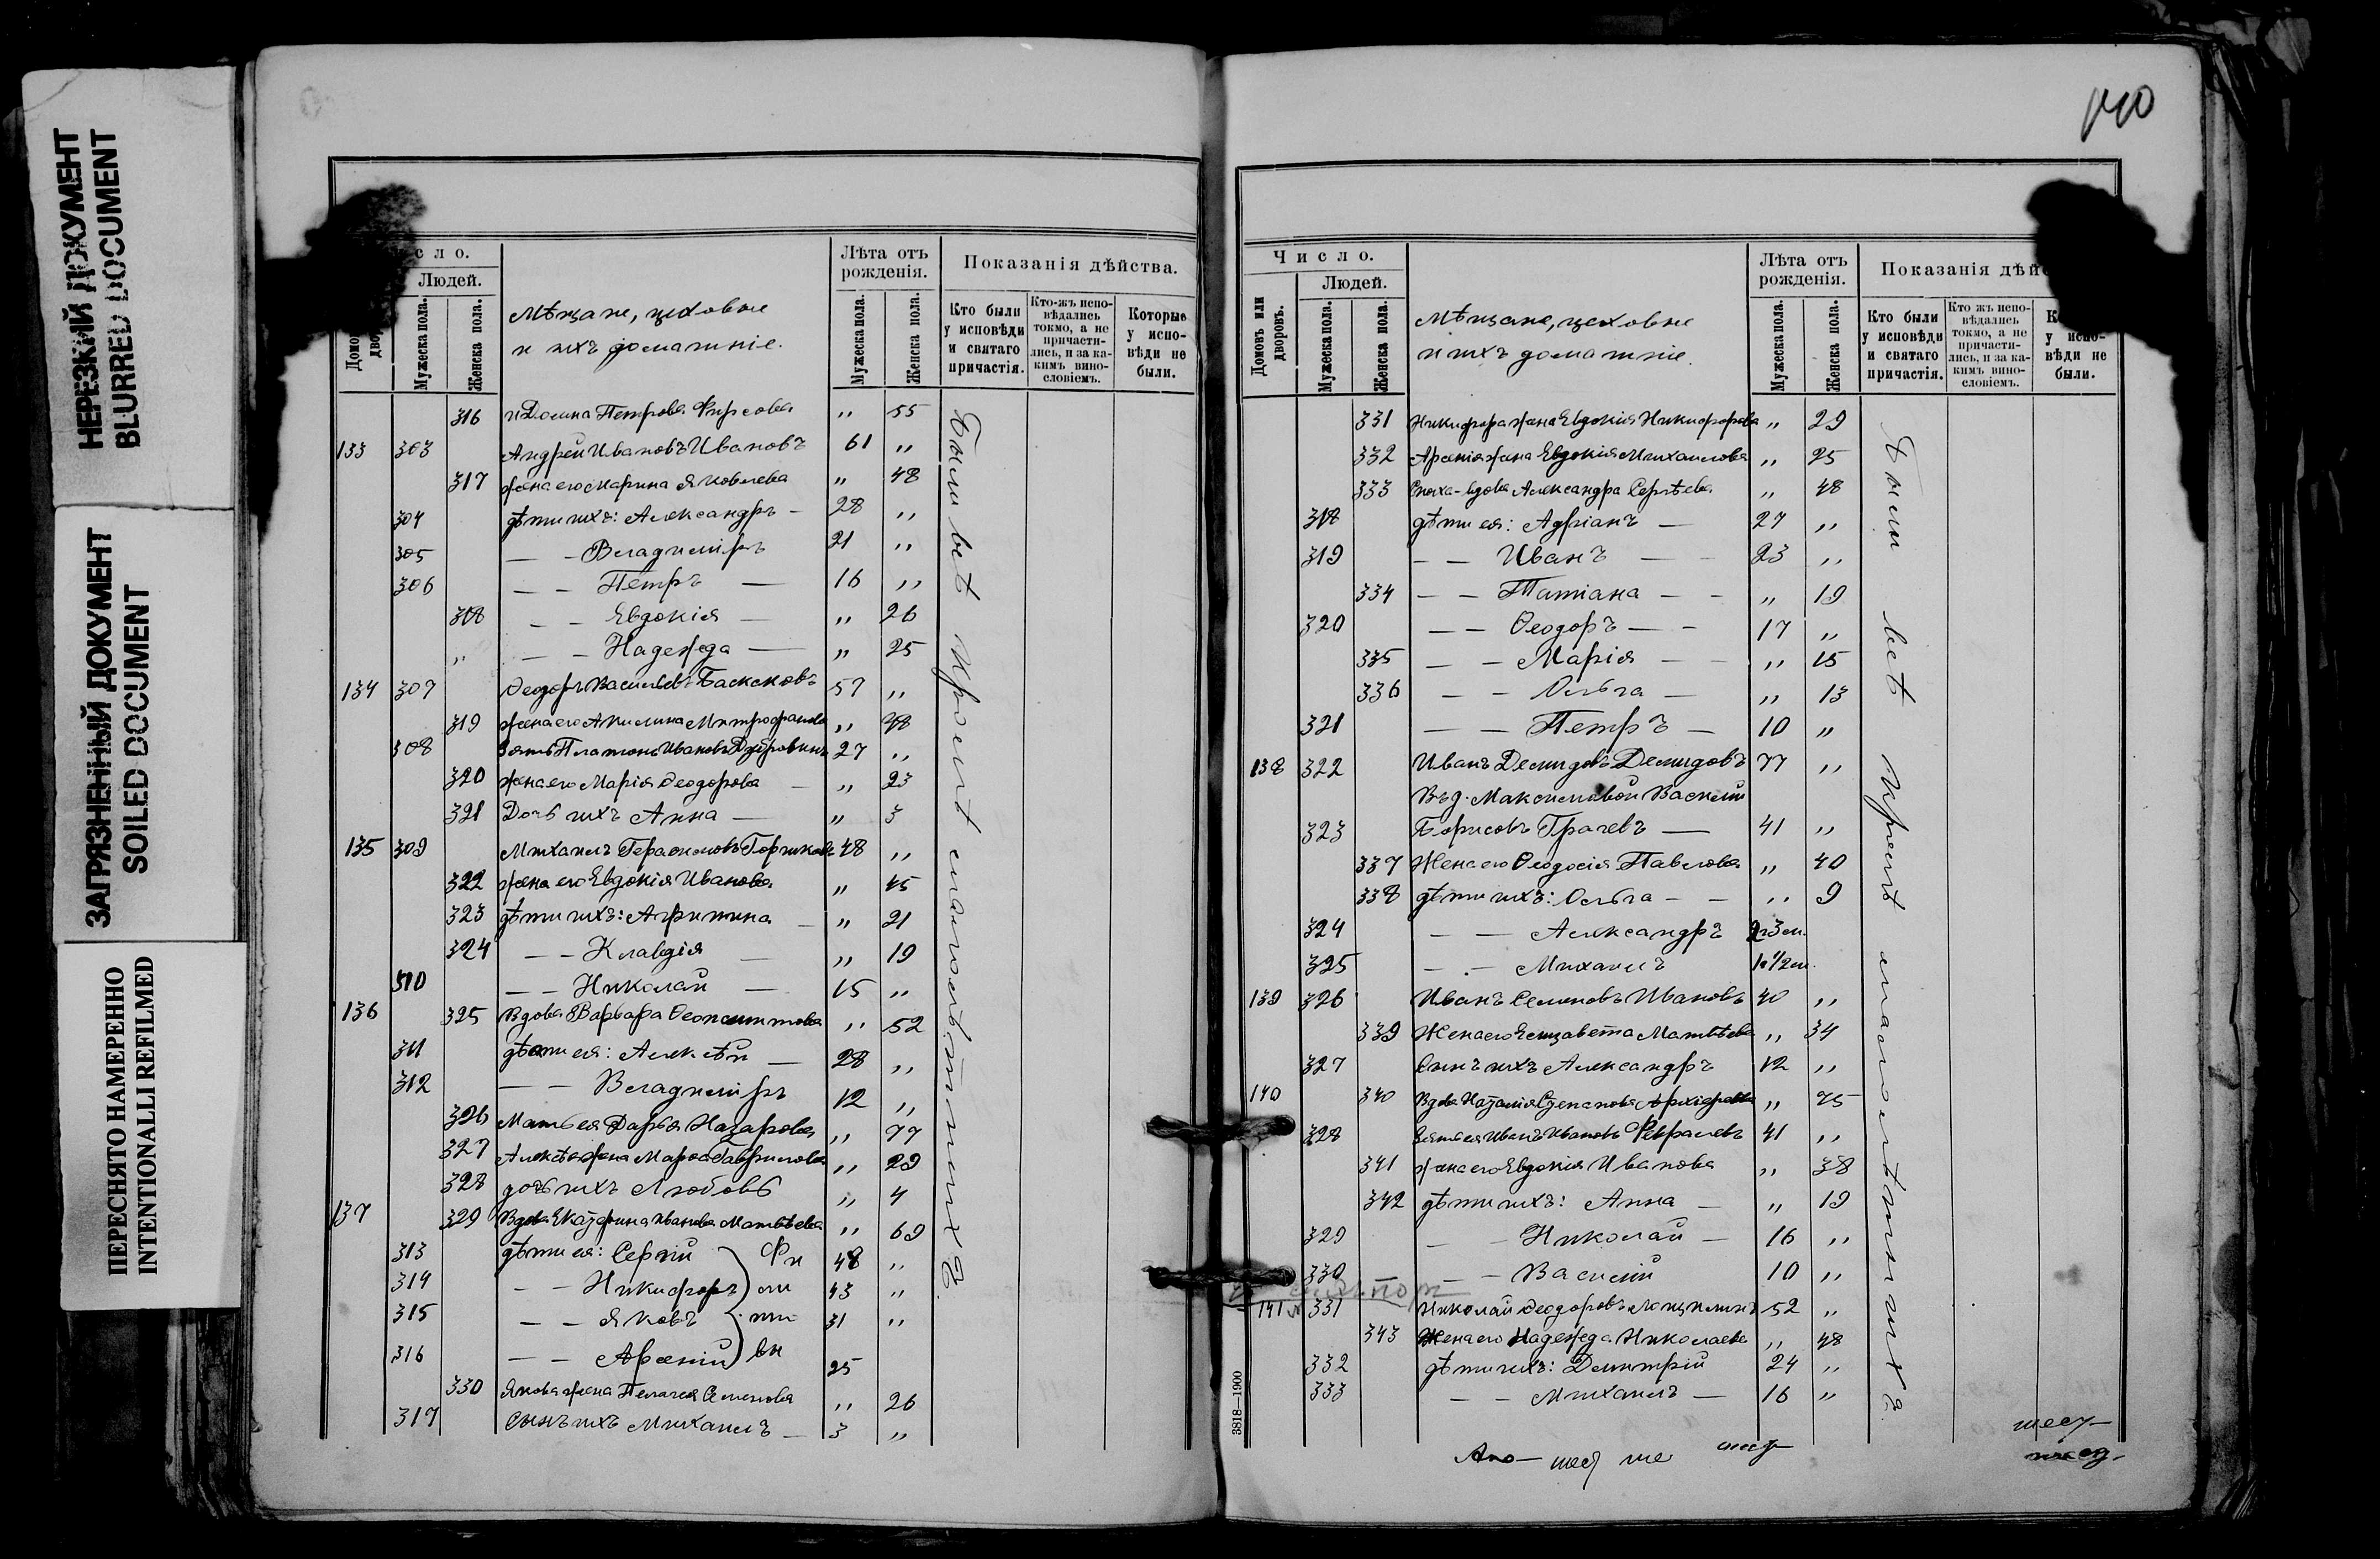 НЕРЕЗКИЙ ДОКУМЕНТ
BLURRED DOCUMENT
ЗАГРЯЗНЕННЫЙ ДОКУМЕНТ
SOILED DOCUMENT
ПЕРЕСНЯТО НАМЕРЕННО
INTENTIONALLI REFILMED
сло.
Людей.
Мужеска пола.
Женска пола.
Мѣщане, цеховые
и ихъ домашніе.
Лѣта отъ рожденія.
Мужеска пола.
Женска пола.
Показанія дѣйства.
Кто были у исповѣди и святаго причастія.
Кто-жъ исповѣдались токмо, а не причастились, и за какимъ винословіемъ.
Которые у исповѣди не были.
316 Петрова Фирсова „ 55
133 303 Андрей Ивановъ Ивановъ 61 „
317 жена его Марина Яковлева „ 48
304 дѣти ихъ: Александръ — 28 „
305 — — Владиміръ 21 „
306 — — Петръ — 16 „
318 — — Евдокія — „ 26
„ — — Надежда — „ 25
134 307 Ѳеодоръ Васильевъ Баскаковъ 57 „
319 жена его Акилина Митрофанова „ 48
308 Зять Платонъ Ивановъ 27 „
320 жена его Марія Ѳеодорова — „ 23
321 Дочь ихъ Анна — „ 3
135 309 Михаилъ Герасимовъ Горшковъ 48 „
322 жена его Евдокія Иванова „ 45
323 дѣти ихъ: Агрипина — „ 21
324 — — Клавдія — „ 19
310 — — Николай — 15 „
136 325 Вдова Варвара Ѳеоктистова „ 52
311 дѣти ея: Алексѣй — 28 „
312 — — Владиміръ 12 „
326 Мать ея Дарья Назарова „ 77
327 Алексѣя жена Марѳа Гаврилова „ 29
328 дочь ихъ Любовь „ 4
137 329 Вдова Екатерина Иванова Матвѣева „ 69
313 дѣти ея: Сергій 48 „
314 — — Никифоръ 43 „
315 — — Яковъ 31 „
316 — — Арсеній 25
330 Якова жена Пелагея Семенова „ 26
317 Сынъ ихъ Михаилъ — 3 „
Были всѣ кромѣ малолѣтнихъ.
140
Число.
Домовъ или дворовъ.
Людей.
Мужеска пола.
Женска пола.
Мѣщане, цеховые
и ихъ домашніе
Лѣта отъ рожденія.
Мужеска пола.
Женска пола.
Показанія дѣйс
Кто были у исповѣди и святаго причастія.
Кто жъ исповѣдались токмо, а не причастились, и за какимъ винословіемъ.
у исповѣди не были.
331 Никифора жена Евдокія Никифорова „ 29
332 Арсенія жена Евдокія Михаилова „ 25
333 Сноха-вдова Александра Сергѣева „ 48
318 дѣти ея: Адріанъ — 27 „
319 — — Иванъ — — 23 „
334 — — Татіана — — „ 19
320 — — Ѳеодоръ — — 17 „
335 — — Марія — — „ 15
336 — — Ольга — „ 13
321 — — Петръ — 10 „
138 322 Иванъ Демидовъ Демидовъ 77 „
Въ д. Максимовой Василій
323 Борисовъ Грачевъ — 41 „
337 Жена его Ѳеодосія Павлова „ 40
338 дѣти ихъ: Ольга — — „ 9
324 — — Александръ 2г 3 м.
325 — — Михаилъ
139 326 Иванъ Семеновъ Ивановъ 40 „
339 Жена его Елизавета Матвѣева „ 34
327 Сынъ ихъ Александръ 12 „
140 340 Вдова Наталія Степанова „ 75
328 Зять ея Иванъ Ивановъ Февралевъ 41 „
341 жена его Евдокія Иванова „ 38
342 дѣти ихъ: Анна — „ 19
329 — — Николай — 16 „
330 — — Василій 10 „
141 331 Николай Ѳеодоровъ 52 „
343 Жена его Надежда Николаева „ 48
332 дѣти ихъ: Димитрій 24 „
333 — — Михаилъ — 16 „
Были всѣ кромѣ малолѣтнихъ.
3818—1900